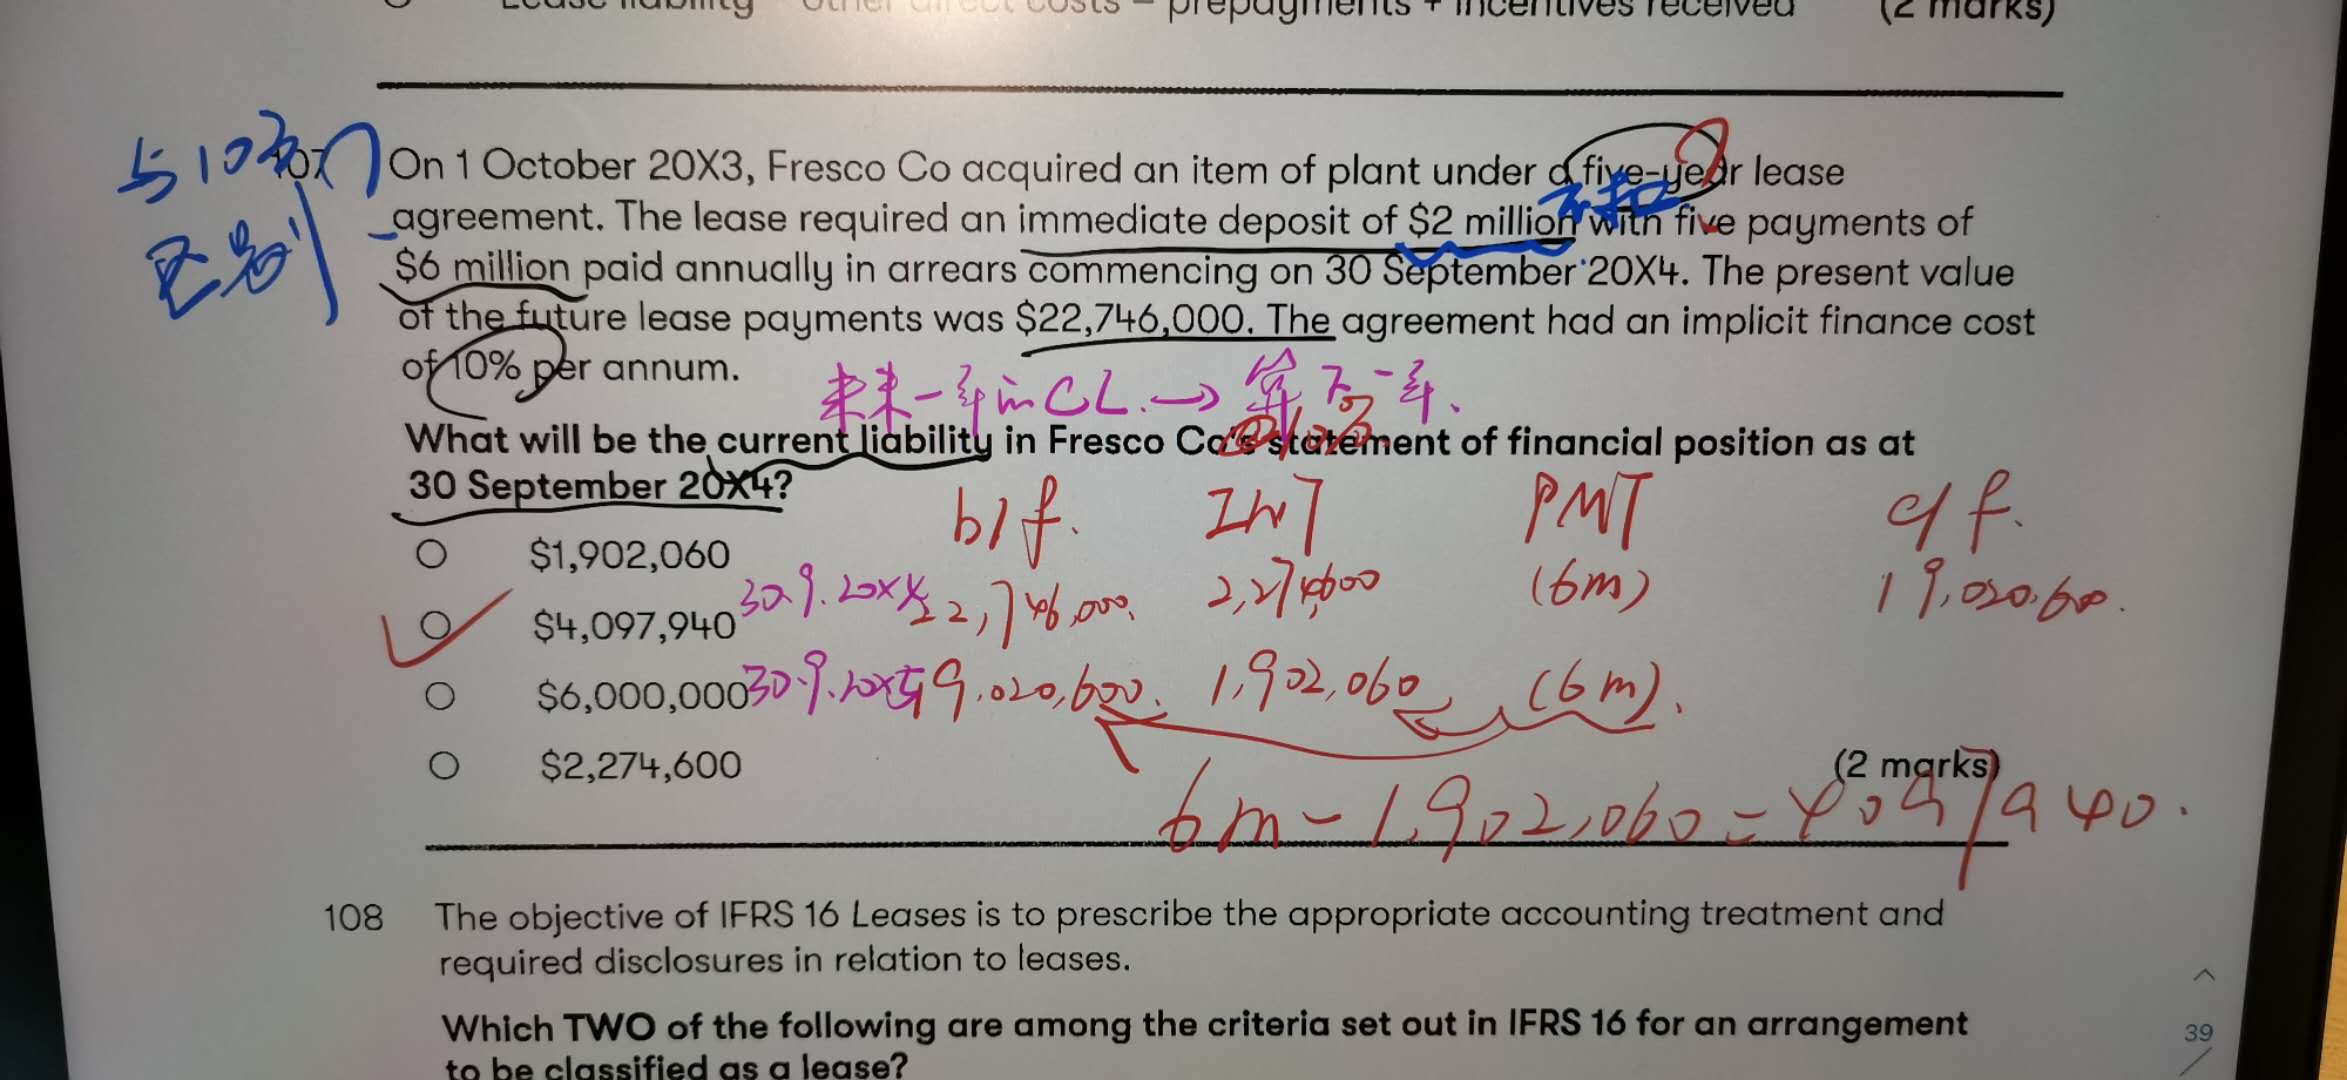 Lease liability – other direct costs – prepayments + incentives received (2 marks)
与10 区别
107 On 1 October 20X3, Fresco Co acquired an item of plant under a five-year lease
不扣
agreement. The lease required an immediate deposit of $2 million with five payments of
$6 million paid annually in arrears commencing on 30 September 20X4. The present value
of the future lease payments was $22,746,000. The agreement had an implicit finance cost
of 10% per annum.
未来一年的CL. → 算下一年.
@10%
What will be the current liability in Fresco Co's statement of financial position as at
30 September 20X4?
b/f. INT PMT c/f.
$1,902,060
30.9.20X4 22,746,000. 2,274,600 (6m) 19,020,600.
$4,097,940
30.9.20X5 19,020,600. 1,902,060 (6m).
$6,000,000
$2,274,600
(2 marks)
6m – 1,902,060 = 4097940.
108 The objective of IFRS 16 Leases is to prescribe the appropriate accounting treatment and
required disclosures in relation to leases.
Which TWO of the following are among the criteria set out in IFRS 16 for an arrangement
to be classified as a lease?
39